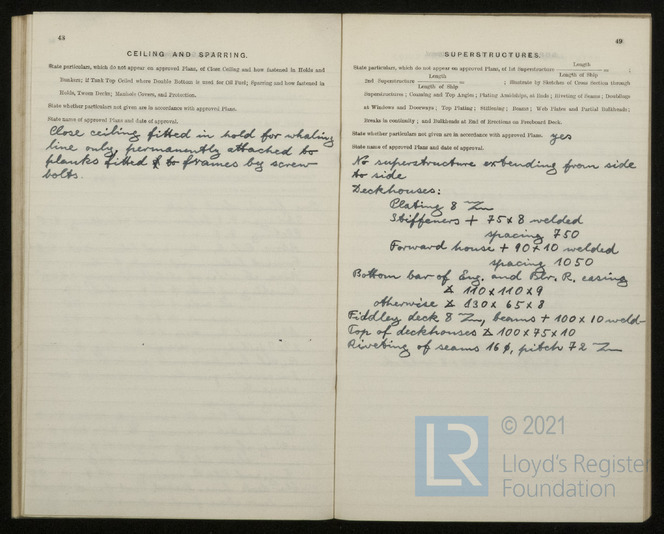 48
CEILING AND SPARRING.
State particulars, which do not appear on approved Plans, of Close Ceiling and how fastened in Holds and
Bunkers; if Tank Top Ceiled where Double Bottom is used for Oil Fuel; Sparring and how fastened in
Holds, Tween Decks; Manhole Covers, and Protection.
State whether particulars not given are in accordance with approved Plans.
State name of approved Plans and date of approval.
Close ceiling fitted in hold for whaling
line only, permanently attached to
planks fitted to frames by screw
bolts.
49
SUPERSTRUCTURES.
State particulars, which do not appear on approved Plans, of 1st Superstructure Length / Length of Ship = ;
2nd Superstructure Length / Length of Ship = ; Illustrate by Sketches of Cross Section through
Superstructures; Coaming and Top Angles; Plating Amidships, at Ends; Riveting of Seams; Doublings
at Windows and Doorways; Top Plating; Stiffening; Beams; Web Plates and Partial Bulkheads;
Breaks in continuity; and Bulkheads at End of Erections on Freeboard Deck.
State whether particulars not given are in accordance with approved Plans. yes
State name of approved Plans and date of approval.
No superstructure extending from side
to side
Deckhouses:
Plating 8
Stiffeners + 75 x 8 welded
spacing 750
Forward house + 90 x 10 welded
spacing 1050
Bottom bar of Eng. and Blr. R. casing
110 x 110 x 9
otherwise 130 x 65 x 8
Fiddley deck 8, beams + 100 x 10 weld
Top of deckhouses 100 x 75 x 10
Riveting of seams 16 ø, pitch 72
LR
© 2021
Lloyd's Register
Foundation